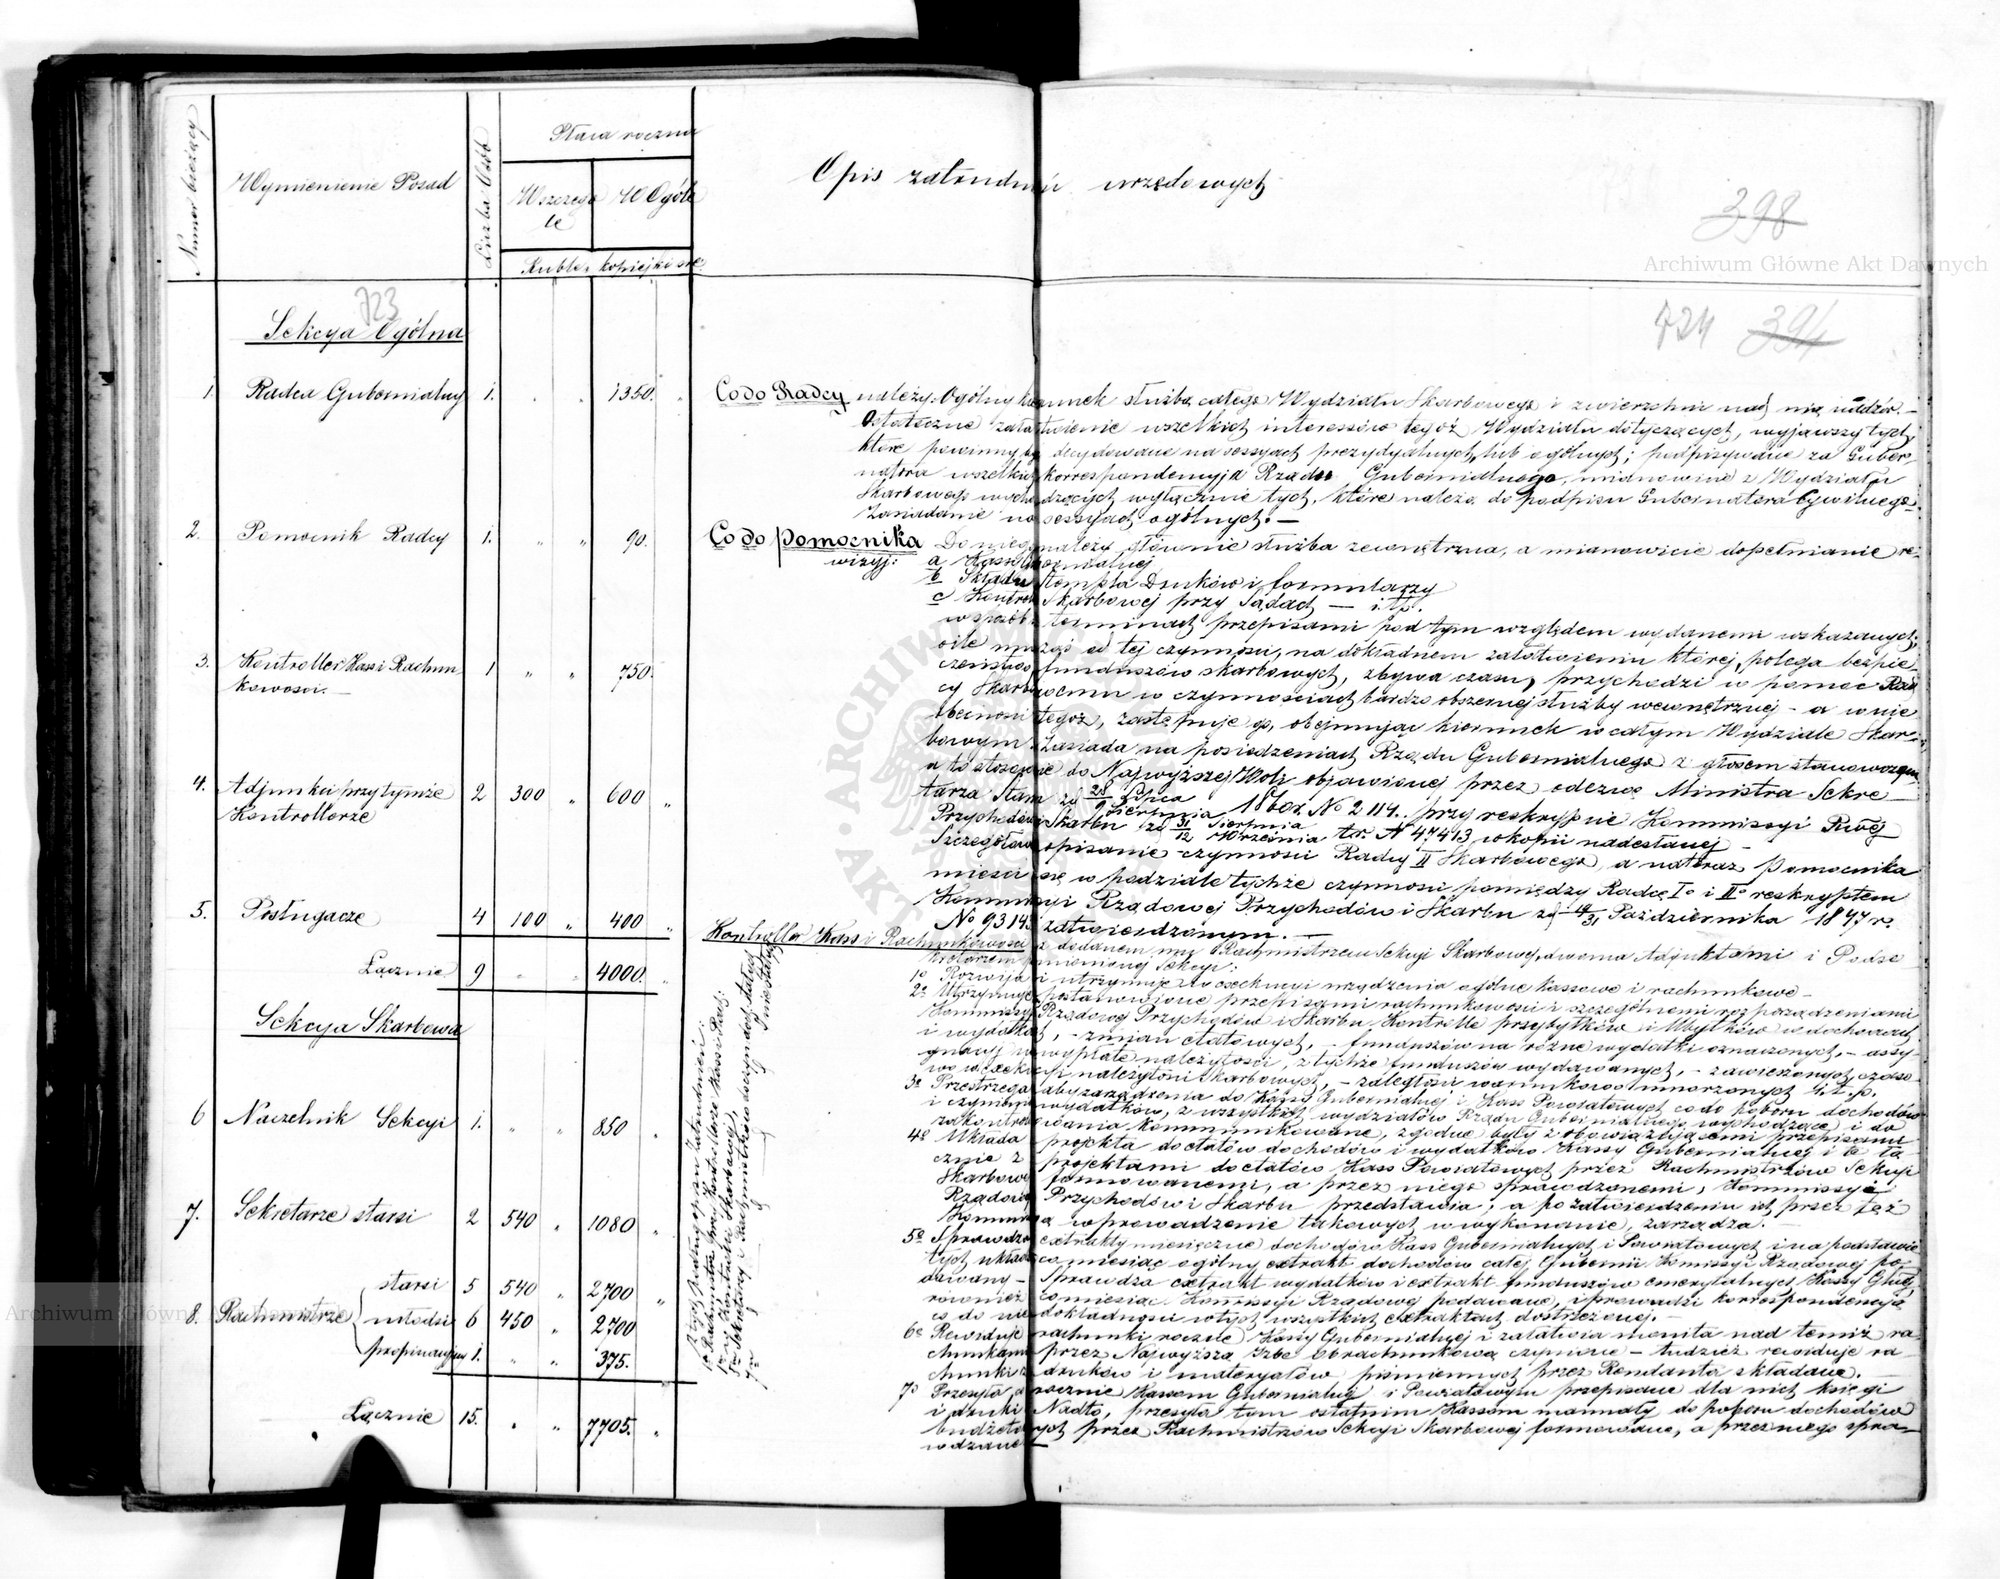 Numer bieżący
Wymienienie Posad
Liczba Osób
Płaca roczna
Wszczegó
le
W Ogóle
Ruble, kopiejki sre.
Opis zatrudnień urzędowych
398
Archiwum Główne Akt Dawnych
723
724 394
Sekcya Ogólna
1. Radca Gubernialny 1. 1350.
2. Pomocnik Radcy 1. " " 90.
3. Kontroller Kass i Rachun 1 " " 750.
kowości.—
4. Adjunkci przy tymże 2 300 " 600 "
Kontrollerze
5. Posługacze 4 100 " 400 "
Łącznie 9 " " 4000. "
Sekcya Skarbowa
6 Naczelnik Sekcyi 1. " " 850 "
7. Sekretarze starsi 2 540 " 1080 "
starsi 5 540 " 2700 "
8. Rachmistrze młodsi 6 450 " 2700
propinacyjny 1. " " 375.
Łącznie 15. " " 7705. "
Co do Radcy należy: Ogólny kierunek służbą całego Wydziału Skarbowego i zwierzchni nad nią nadzór.—
Ostateczne załatwienie wszelkich interessów tegoż Wydziału dotyczących, wyjąwszy tych,
które powinny być decydowane na sessyach prezydyalnych, lub ogólnych; podpisywanie za Guber-
natora wszelkich korrespondencyj Rządu Gubernialnego, mianowicie z Wydziału
Skarbowego wychodzących wyłącznie tych, które należą do podpisu Gubernatora Cywilnego.
Zasiadanie na sessyach ogólnych.—
Co do Pomocnika Do niego należy głównie służba zewnętrzna, a mianowicie dopełnianie re-
wizyj: a Kassy Gubernialnej
b Składu stempla Druków i formularzy
c Kontroli Skarbowej przy Sądach — i t. p.
w sposób i terminach przepisami pod tym względem wydanemi wskazanych;
o ile mu zaś od tej czynności, na dokładnem załatwieniu której, polega bezpie-
czeństwo funduszów skarbowych, zbywa czasu, przychodzi w pomoc Rad
cy Skarbowemu w czynnościach bardzo obszernej służby wewnętrznej — a w nie
obecności tegoż, zastępuje go, obejmując kierunek w całym Wydziale Skar-
bowym. Zasiada na posiedzeniach Rządu Gubernialnego z głosem stanowczym
a to stosownie do Najwyższej Woli objawionej przez odezwę Ministra Sekre-
tarza Stanu zd 28 Lipca / 9 Sierpnia 1860 r. No 2114. przy reskrypcie Kommissyi Rząd
Przychodów i Skarbu zd 31 Sierpnia / 12 Września t.r. No 47413 w kopii nadesłanej —
Szczegółowe opisanie czynności Radcy II Skarbowego, a natéraz Pomocnika
mieści się w podziale tychże czynności pomiędzy Radcę Io i IIo reskryptem
Kommissyi Rządowej Przychodów i Skarbu zd 19/31 Października 1847 r.
No 93143 zatwierdzonym.—
Kontroller Kass i Rachunkowości z dodanem mu Rachmistrzem Sekcyi Skarbowej, dwoma Adjunktami i Podse
kretarzem wymienionej Sekcyi:
1o Rozwija i utrzymuje do exekucyi urządzenia ogólne kassowe i rachunkowe —
2o Utrzymuje postanowione przepisami rachunkowości i szczególnemi rozporządzeniami
Kommissyi Rządowej Przychodów i Skarbu, Kontrolle przybytków i ubytków w dochodach
i wydatkach, — zmian etatowych, — funduszów na różne wydatki oznaczonych, — assy-
gnacyj na wypłatę należytości, z tychże funduszów wydawanych, — zawieszonych czaso
wo w exekucyi należytości Skarbowych, — zaległości warunkowo umorzonych i. t. p.
3o Przestrzega aby zarządzenia do Kassy Gubernialnej i Kass Powiatowych co do poboru dochodów
i czynienia wydatków, z wszystkich wydziałów Rządu Gubernialnego wychodzące i do
zakontrolowania kommunikowane, zgodne były z obowiązującemi przepisami
4o Układa projekta do etatów dochodów i wydatków Kassy Gubernialnej i te łą
cznie z projektami do etatów Kass Powiatowych przez Rachmistrzów Sekcyi
Skarbowej formowanemi, a przez niego sprawdzonemi, Kommissyi
Rządowej Przychodów i Skarbu przedstawia; a po zatwierdzeniu ich przez też
Kommissyą wprowadzenie takowych w wykonanie, zarządza.—
5o Sprawdza extrakty miesięczne dochodów Kass Gubernialnych i Powiatowych i na podstawie
tych układa co miesiąc ogólny extrakt dochodów całej Gubernii Komisyi Rządowej po-
dawany — Sprawdza extrakt wydatków i extrakt funduszów emerytalnych Kassy Głów
również co miesiąc Kommissyi Rządowej podawane, i prowadzi korrespondencyą
co do niedokładności w tych wszystkich extraktach dostrzeżonej.—
6o Rewiduje rachunki roczne Kassy Gubernialnej i załatwia monita nad temiż ra-
chunkami przez Najwyższą Izbę Obrachunkową czynione — tudzież rewiduje ra-
chunki z druków i materyałów piśmiennych przez Rendanta składane.—
7o Przesyła corocznie Kassom Gubernialnej i Powiatowym przepisane dla nich księgi
i druki Nadto, przesyła tym ostatnim Kassom manuały do poboru dochodów
budżetowych przez Rachmistrzów Sekcyi Skarbowej formowane, a przez niego spra-
wdzane
ARCHIWUM
AKT
Archiwum Główne